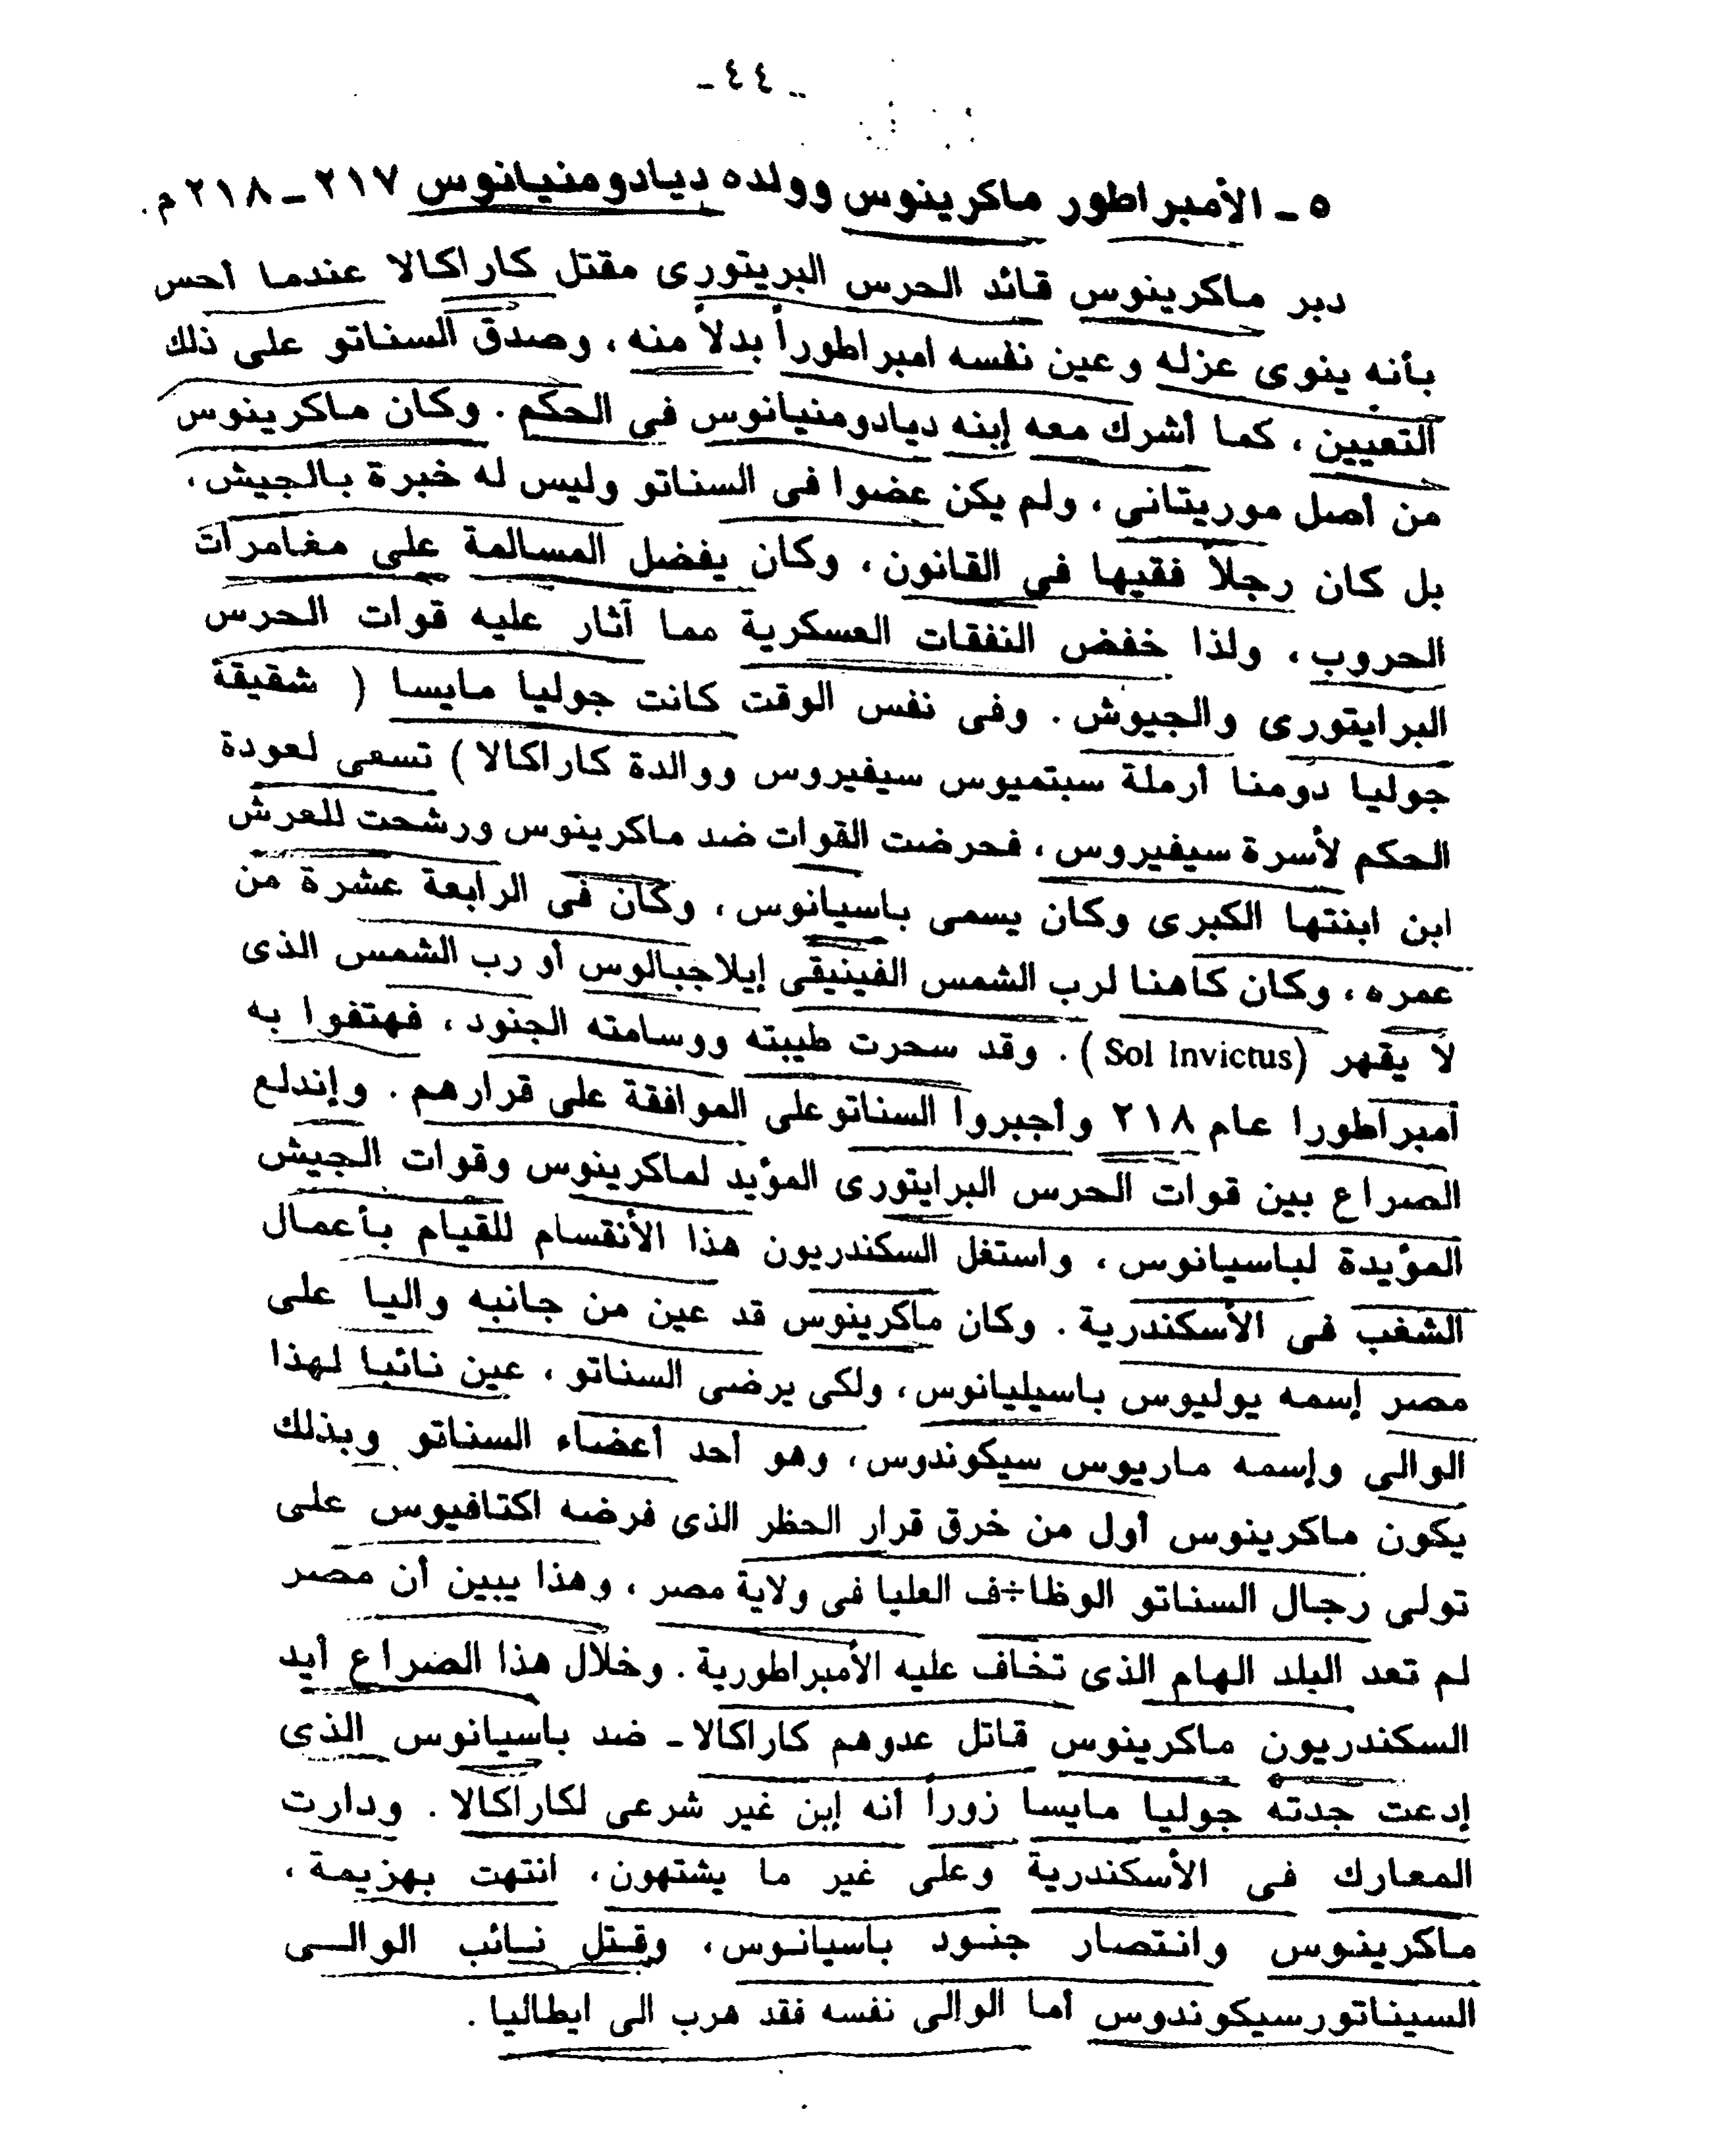 - ٤٤ -
٥ - الأمبراطور ماكرينوس وولده ديادومنيانوس ٢١٧ - ٢١٨ م.
دبر ماكرينوس قائد الحرس البريتورى مقتل كاراكالا عندما أحس
بأنه ينوى عزله وعين نفسه امبراطوراً بدلاً منه ، وصدق السناتو على ذلك
التعيين ، كما أشرك معه إبنه ديادومنيانوس فى الحكم . وكان ماكرينوس
من أصل موريتانى ، ولم يكن عضوا فى السناتو وليس له خبرة بالجيش ،
بل كان رجلاً فقيها فى القانون ، وكان يفضل المسالمة على مغامرات
الحروب ، ولذا خفض النفقات العسكرية مما آثار عليه قوات الحرس
البرايتورى والجيوش . وفى نفس الوقت كانت جوليا مايسا ( شقيقة
جوليا دومنا أرملة سبتميوس سيفيروس ووالدة كاراكالا ) تسعى لعودة
الحكم لأسرة سيفيروس ، فحرضت القوات ضد ماكرينوس ورشحت للعرش
ابن ابنتها الكبرى وكان يسمى باسيانوس ، وكان فى الرابعة عشرة من
عمره ، وكان كاهنا لرب الشمس الفينيقى إيلاجبالوس أو رب الشمس الذى
لا يقهر (Sol Invictus) . وقد سحرت طيبته ووسامته الجنود ، فهتفوا به
أمبراطورا عام ٢١٨ وأجبروا السناتو على الموافقة على قرارهم . وإندلع
الصراع بين قوات الحرس البرايتورى المؤيد لماكرينوس وقوات الجيش
المؤيدة لباسيانوس ، واستغل السكندريون هذا الأنقسام للقيام بأعمال
الشغب فى الأسكندرية . وكان ماكرينوس قد عين من جانبه واليا على
مصر إسمه يوليوس باسيليانوس ، ولكى يرضى السناتو ، عين نائبا لهذا
الوالى وإسمه ماريوس سيكوندوس ، وهو أحد أعضاء السناتو وبذلك
يكون ماكرينوس أول من خرق قرار الحظر الذى فرضه اكتافيوس على
تولى رجال السناتو الوظا÷ف العليا فى ولاية مصر ، وهذا يبين أن مصر
لم تعد البلد الهام الذى تخاف عليه الأمبراطورية . وخلال هذا الصراع أيد
السكندريون ماكرينوس قاتل عدوهم كاراكالا - ضد باسيانوس الذى
إدعت جدته جوليا مايسا زوراً أنه إبن غير شرعى لكاراكالا . ودارت
المعارك فى الأسكندرية وعلى غير ما يشتهون ، انتهت بهزيمة ،
ماكرينوس وانتصار جنود باسيانوس ، وقتل نائب الوالى
السيناتورسيكوندوس أما الوالى نفسه فقد هرب الى ايطاليا .